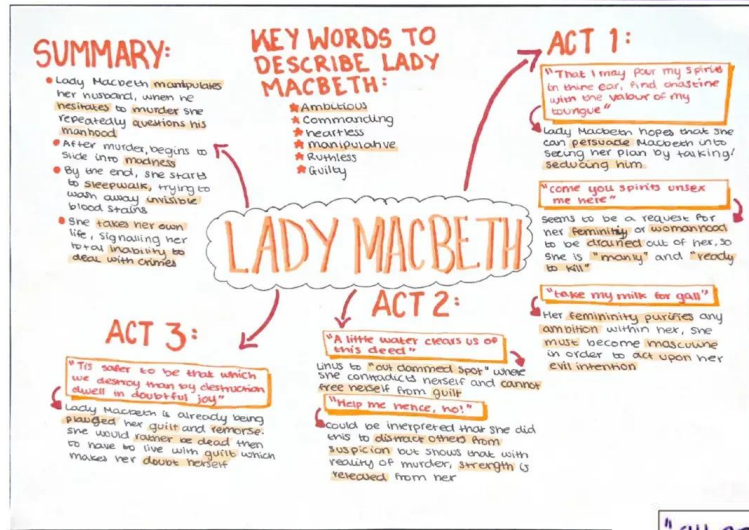 SUMMARY:
Lady Macbeth manipulates
her husband, when he
hesitates to murder she
repeatedly questions his
manhood
After murder, begins to
slide into madness
By the end, she starts
to sleepwalk, trying to
wash away invisible
blood stains
She takes her own
life, signalling her
total inability to
deal with crimes
KEY WORDS TO
DESCRIBE LADY
MACBETH:
Ambitious
Commanding
heartless
manipulative
Ruthless
Guilty
ACT 1:
"That I may pour my spirits
in thine ear, And chastine
with the valour of my
toungue"
Lady Macbeth hopes that she
can persuade Macbeth into
seeing her plan by talking/
seducing him
"come you spirits unsex
me here"
Seems to be a request for
her femininity or womanhood
to be drained out of her, so
she is "manly" and "ready
to kill"
"take my milk for gall"
Her femininity purifies any
ambition within her, she
must become masculine
in order to act upon her
evil intention
LADY MACBETH
ACT 2:
"A little water clears us of
this deed"
Links to "out dammed spot" where
she contradicts herself and cannot
free herself from guilt
"Help me hence, ho!"
could be inerpreted that she did
this to distract others from
suspicion but shows that with
reality of murder, strength is
released from her
ACT 3:
"Tis safer to be that which
we destroy than by destruction
dwell in doubtful joy"
Lady Macbeth is already being
plauged her guilt and remorse.
she would rather be dead then
to have to live with guilt which
makes her doubt herself